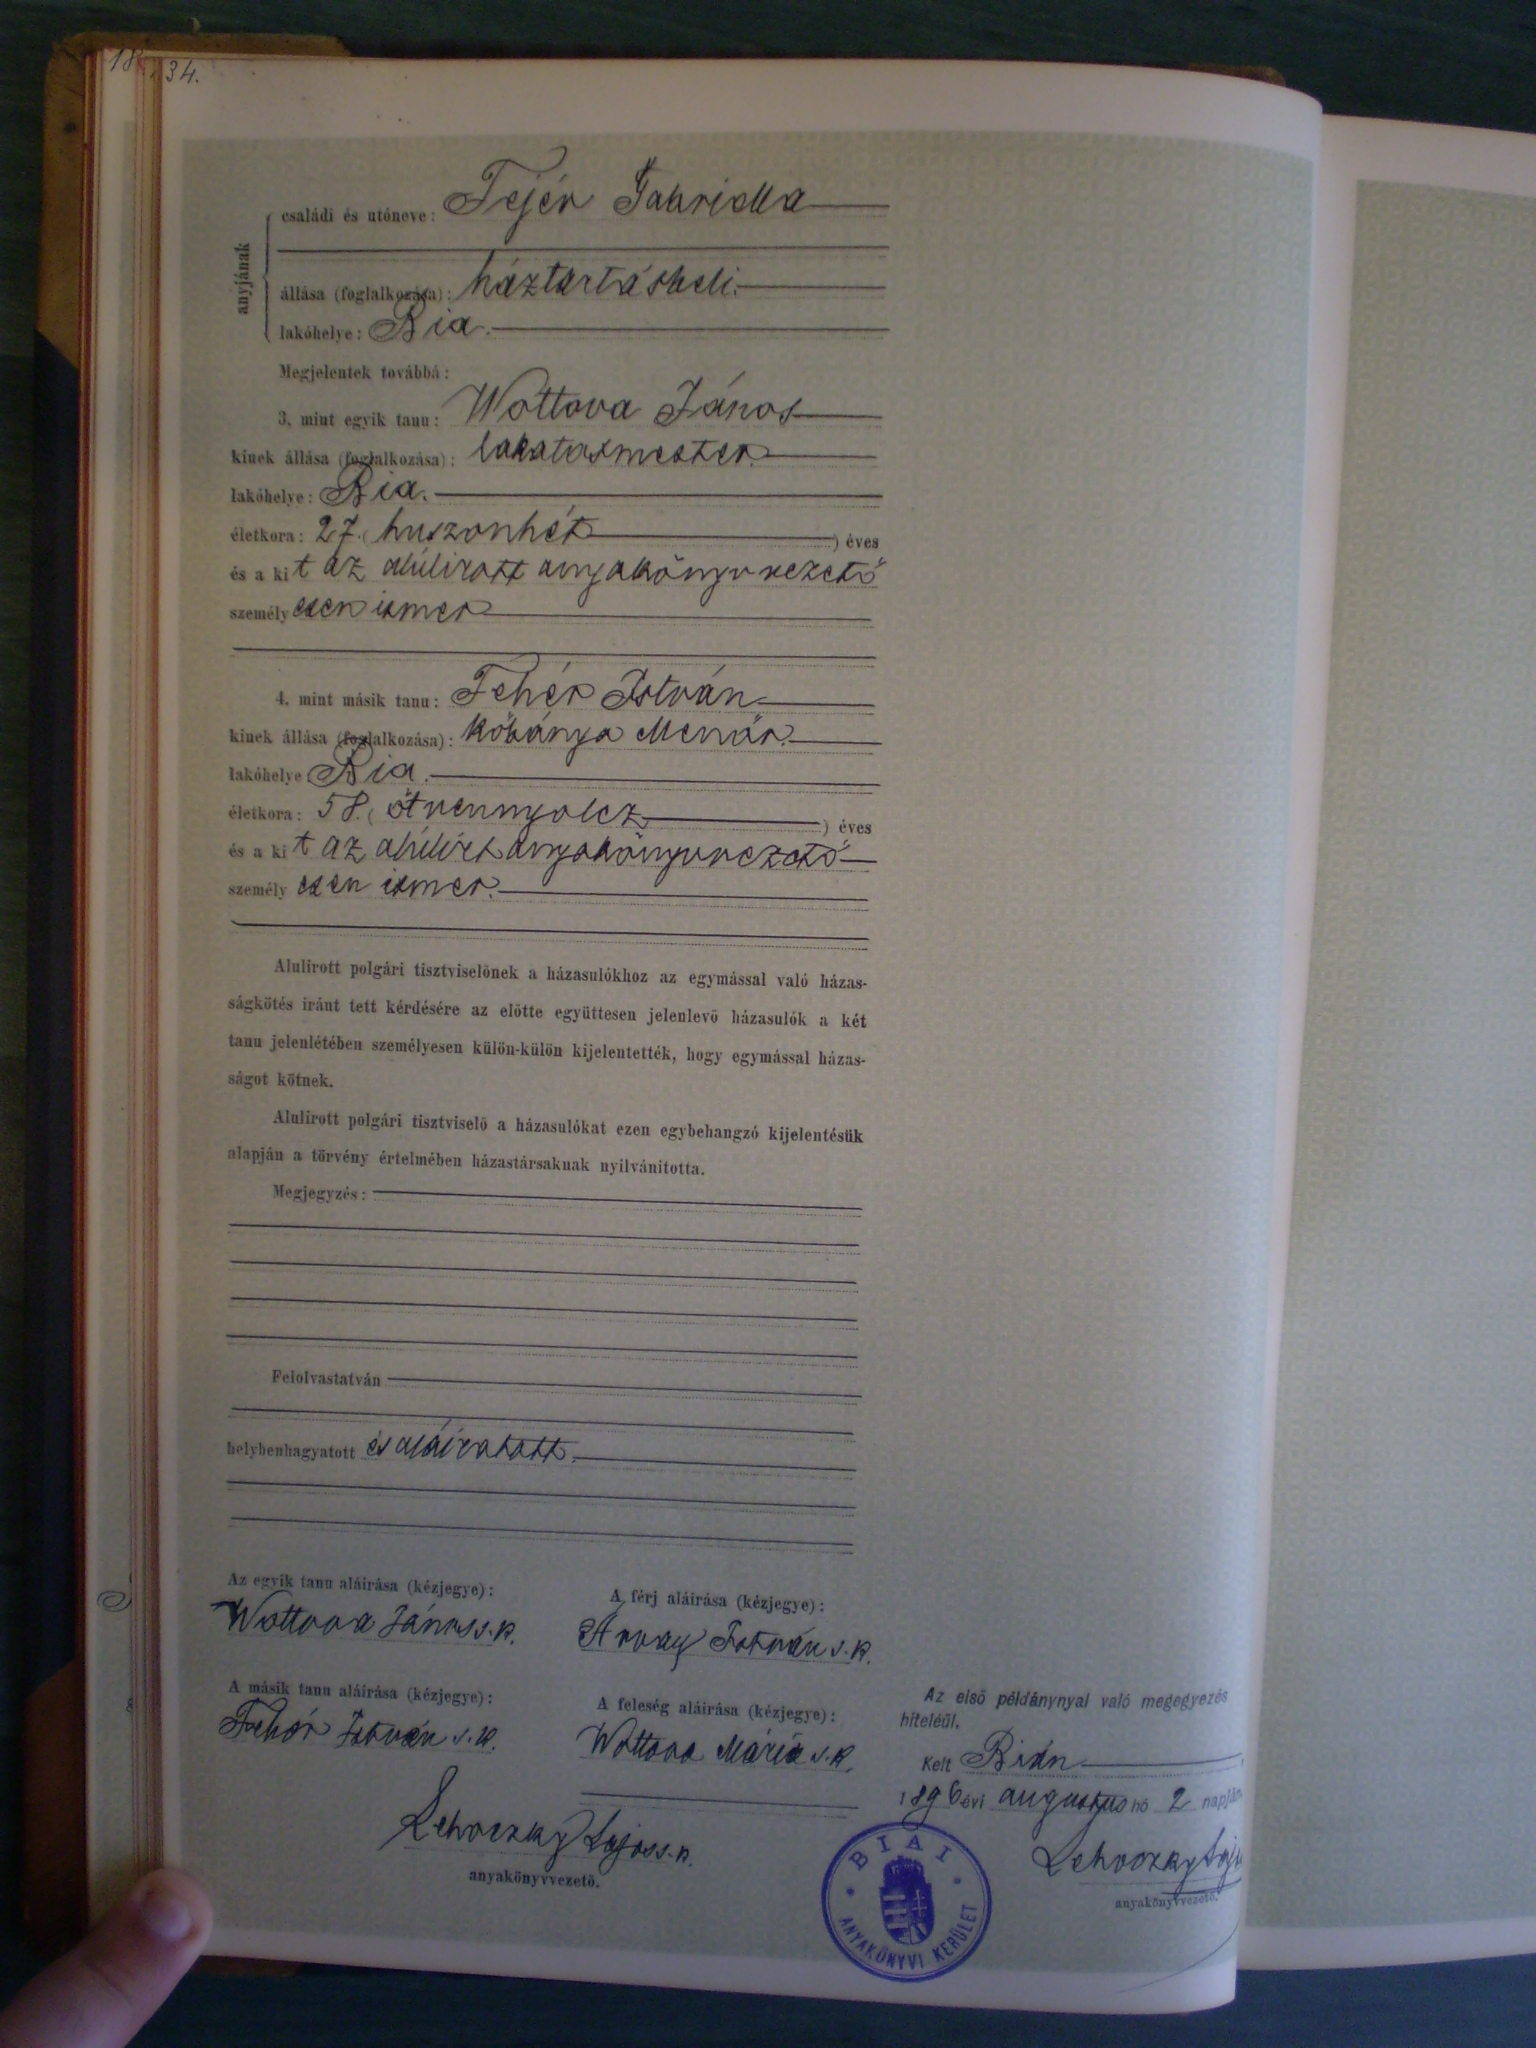 18
34.
anyjának
családi és utóneve: Fejér Gabriella
állása (foglalkozása): háztartásbeli.
lakóhelye: Bia.
Megjelentek továbbá:
3. mint egyik tanu: Wottova János
kinek állása (foglalkozása): lakatosmester.
lakóhelye: Bia.
életkora: 27. (huszonhét) éves
és a kit az alúlirott anyakönyvvezető
személyesen ismer
4. mint másik tanu: Fehér István
kinek állása (foglalkozása): kőbánya
lakóhelye Bia.
életkora: 58. (ötvennyolcz) éves
és a kit az alúlírt anyakönyvvezető
személyesen ismer.
Alulirott polgári tisztviselőnek a házasulókhoz az egymással való házas-
ságkötés iránt tett kérdésére az előtte együttesen jelenlevő házasulók a két
tanu jelenlétében személyesen külön-külön kijelentették, hogy egymással házas-
ságot kötnek.
Alulirott polgári tisztviselő a házasulókat ezen egybehangzó kijelentésük
alapján a törvény értelmében házastársaknak nyilvánitotta.
Megjegyzés:
Felolvastatván
helybenhagyatott és aláiratott.
Az egyik tanu aláirása (kézjegye):
Wottova János s. k.
A férj aláirása (kézjegye):
Árvay István s. k.
A másik tanu aláirása (kézjegye):
Fehér István s. k.
A feleség aláirása (kézjegye):
Wottova Mária s. k.
Lehoczky Lajos s. k.
anyakönyvvezető.
Az első példánynyal való megegyezés
hiteléül.
Kelt Bián
1896 évi augusztus hó 2 napján
Lehoczky Lajos
anyakönyvvezető.
BIAI
ANYAKÖNYVI KERÜLET